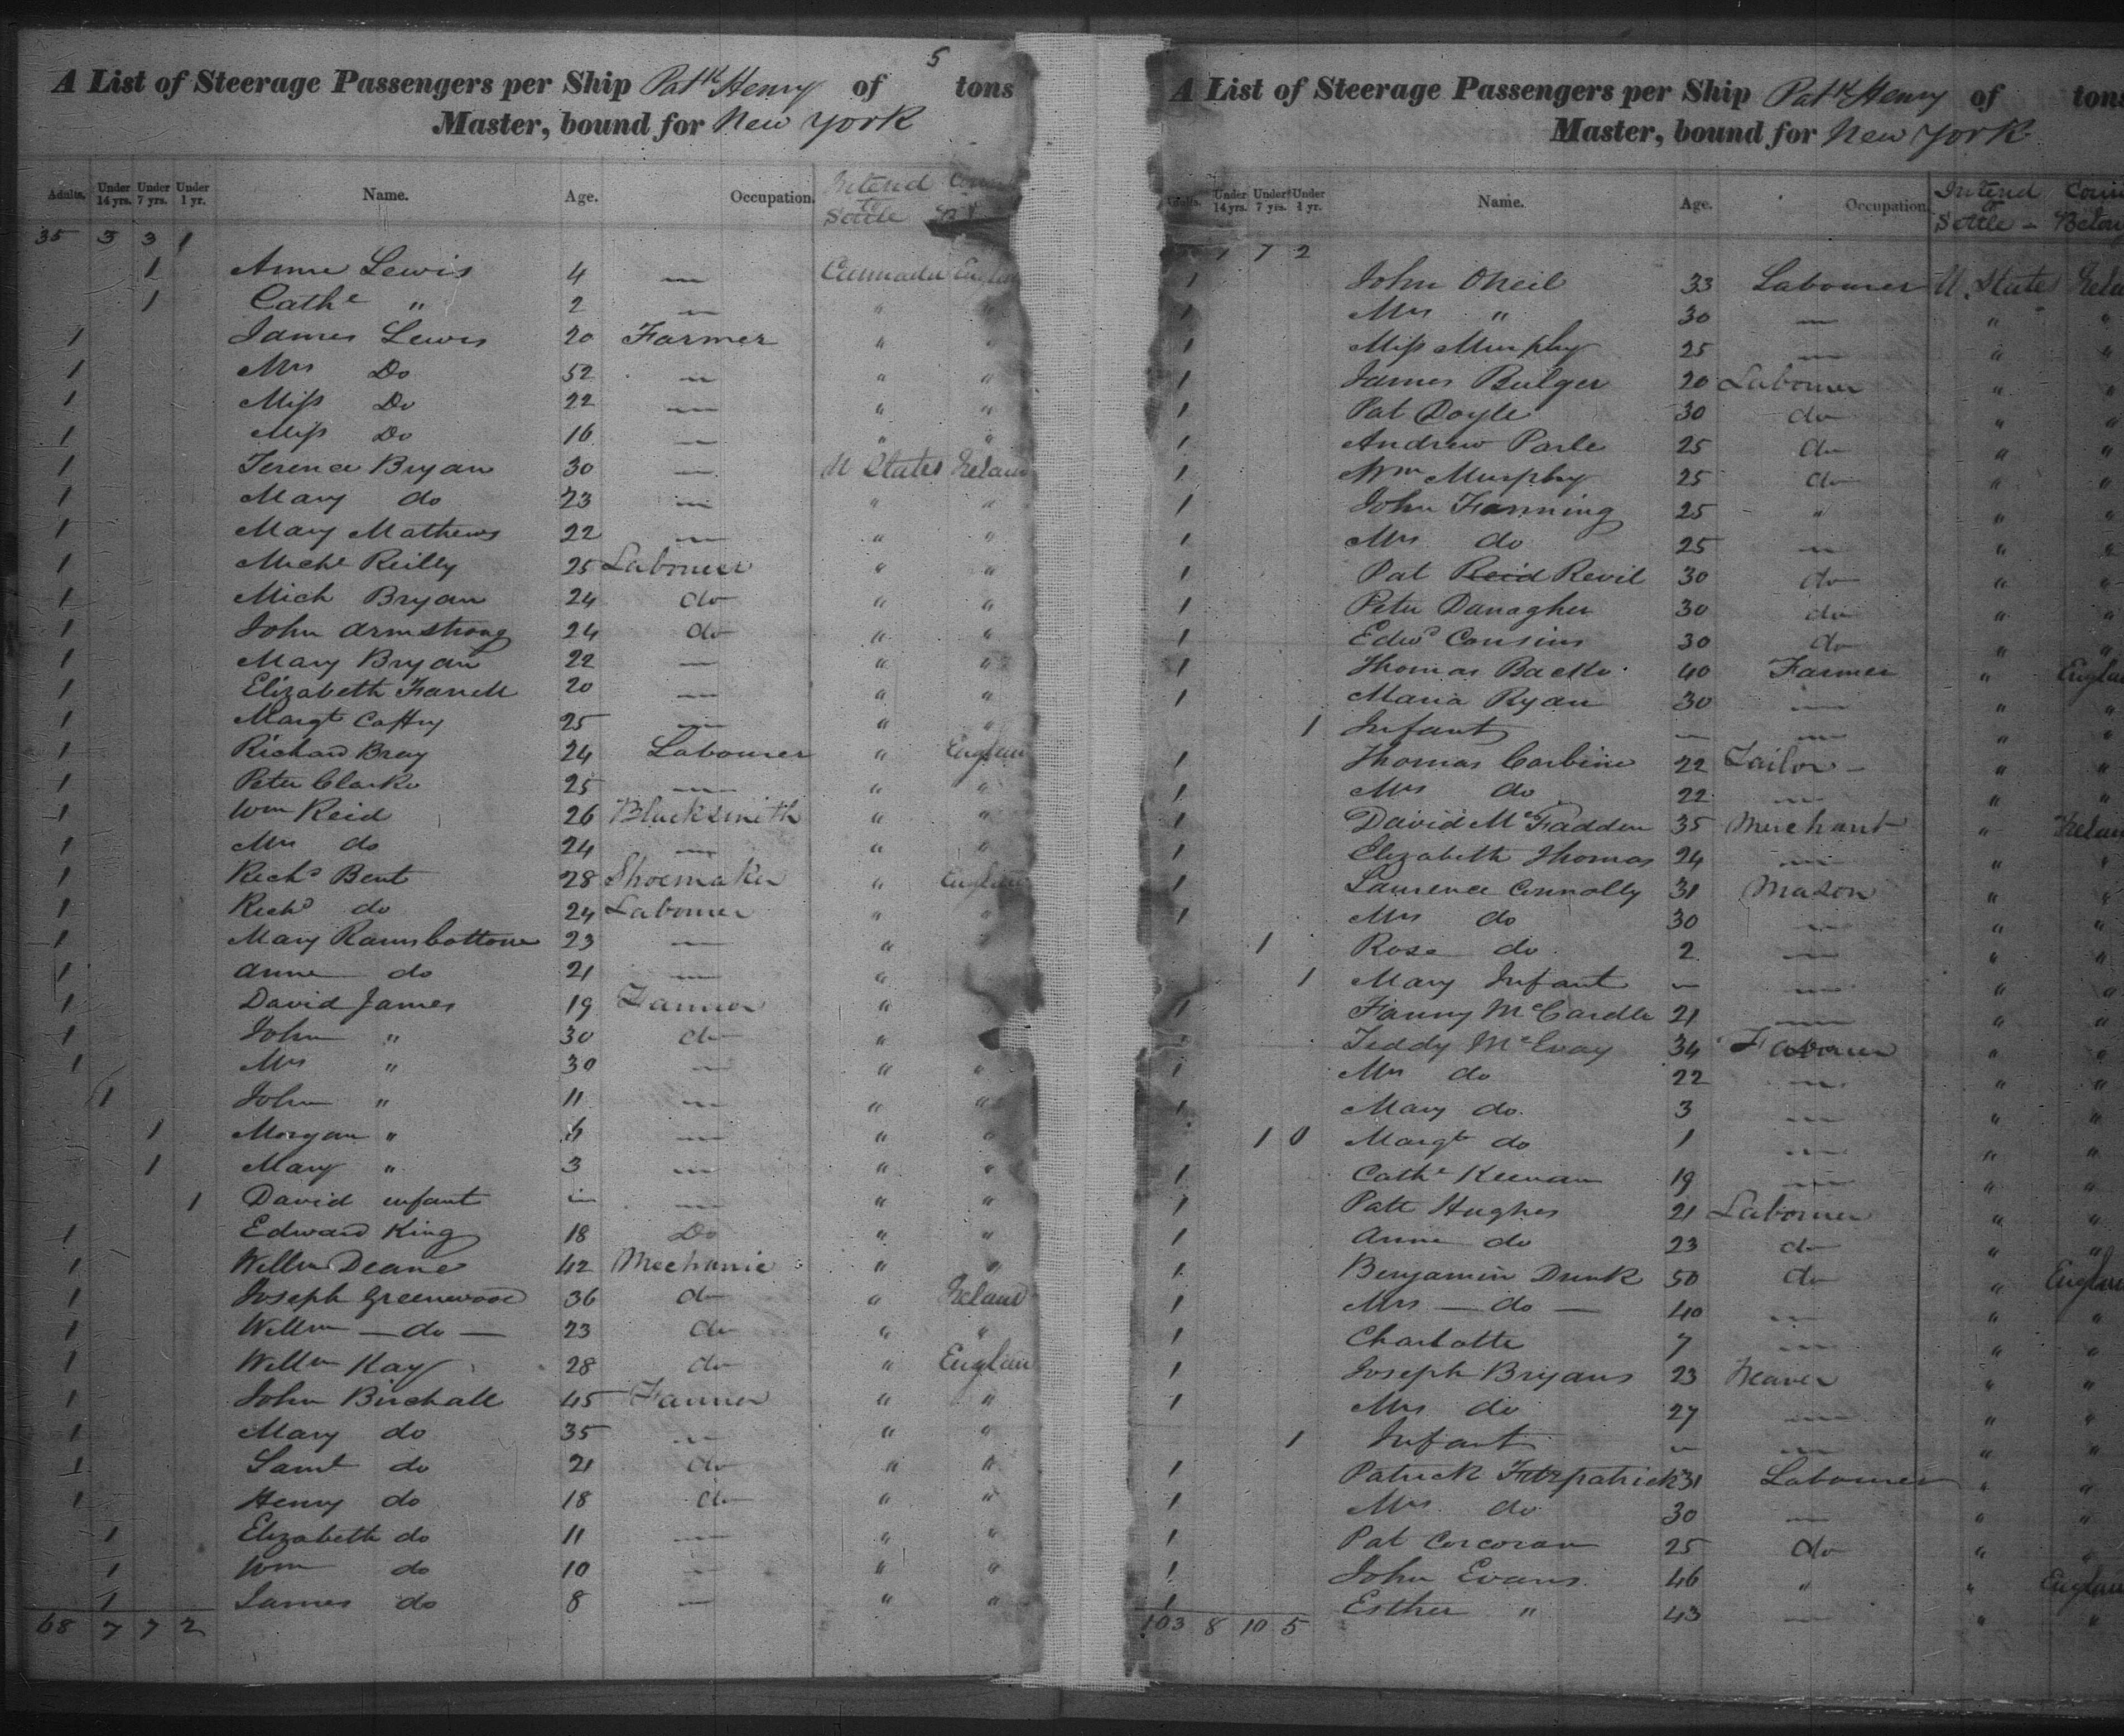 5
A List of Steerage Passengers per Ship Patk Henry of tons
Master, bound for New York
Adults. Under 14 yrs. Under 7 yrs. Under 1 yr. Name. Age. Occupation. Intend to Settle
35 5 3 1
1 Anne Lewis 4 — Cannada
1 Cathe " 2 — " "
1 James Lewis 20 Farmer " "
1 Mrs Do 52 — " "
1 Miss Do 22 — " "
1 Miss Do 16 — " "
1 Terence Bryan 30 — U States Irelan
1 Mary do 23 — " "
1 Mary Mathews 22 — " "
1 Michl Reilly 25 Labourer " "
1 Mich Bryan 24 do " "
1 John Armstrong 24 do " "
1 Mary Bryan 22 — " "
1 Elizabeth Farrell 20 — " "
1 Margt Caffry 25 — " "
1 Richard Bray 24 Labourer " Englan
1 Peter Clarke 25 — " "
1 Wm Reid 26 Blacksmith " "
1 Mrs do 24 — " "
1 Richd Bent 28 Shoemaker " Englan
1 Richd do 24 Labourer " "
1 Mary Ramsbottom 23 — " "
1 Anne do 21 — "
1 David James 19 Farmer "
1 John " 30 do "
1 Mrs " 30 — " "
1 John " 11 — " "
1 Morgan " — " "
1 Mary " 3 — " "
1 David infant — — " "
1 Edward King 18 Do " "
1 Willm Deane 42 Mechanic " "
1 Joseph Greenwood 36 do " Ireland
1 Willm — do — 23 do " "
1 Willm Kay 28 do " Englan
1 John Birchall 45 Farmer " "
1 Mary do 35 — " "
1 Saml do 21 do " "
1 Henry do 18 do " "
1 Elizabeth do 11 — " "
1 Wm do 10 — " "
1 James do 8 — " "
68 7 7 2
A List of Steerage Passengers per Ship Patk Henry of tons
Master, bound for New York
Under 14 yrs. Under 7 yrs. Under 1 yr. Name. Age. Occupation. Intend to Settle —
7 2
1 John ONeil 33 Labourer U. States Irela
1 Mrs " 30 — " "
1 Miss Murphy 25 — " "
1 James Bulger 20 Labourer " "
1 Pat Doyle 30 do " "
1 Andrew Parle 25 do " "
1 Wm Murphy 25 do " "
1 John Fanning 25 " " "
1 Mrs do 25 — " "
1 Pat Reid Revil 30 do " "
1 Peter Danagher 30 do " "
1 Edwd Cousins 30 do " "
1 Thomas 40 Farmer " Englan
1 Maria Ryan 30 — " "
1 Infant — — " "
1 Thomas Carbine 22 Tailor — " "
1 Mrs do 22 — " "
1 David McFadden 35 Merchant " Irelan
1 Elizabeth Thomas 24 — " "
1 Laurence Connolly 31 Mason " "
1 Mrs do 30 — " "
1 Rose do 2 — " "
1 Mary Infant — — " "
1 Fanny McCardle 21 — " "
Teddy McEvoy 34 " "
1 Mrs do 22 — " "
1 Mary do 3 — " "
1 0 Margt do 1 — " "
1 Cathe Keenan 19 — " "
1 Patt Hughes 21 Labourer " "
1 Anne do 23 do " "
1 Benjamin Drunk 50 do " Englan
1 Mrs — do — 40 — " "
1 Charlotte 7 — " "
1 Joseph Bryans 23 Weaver " "
1 Mrs do 27 — " "
1 Infant — — " "
1 Patrick Fitzpatrick 31 Labourer " "
1 Mrs do 30 — " "
1 Pat Corcoran 25 do " "
1 John Evans 46 " " Englan
1 Esther " 43 — " "
103 8 10 5